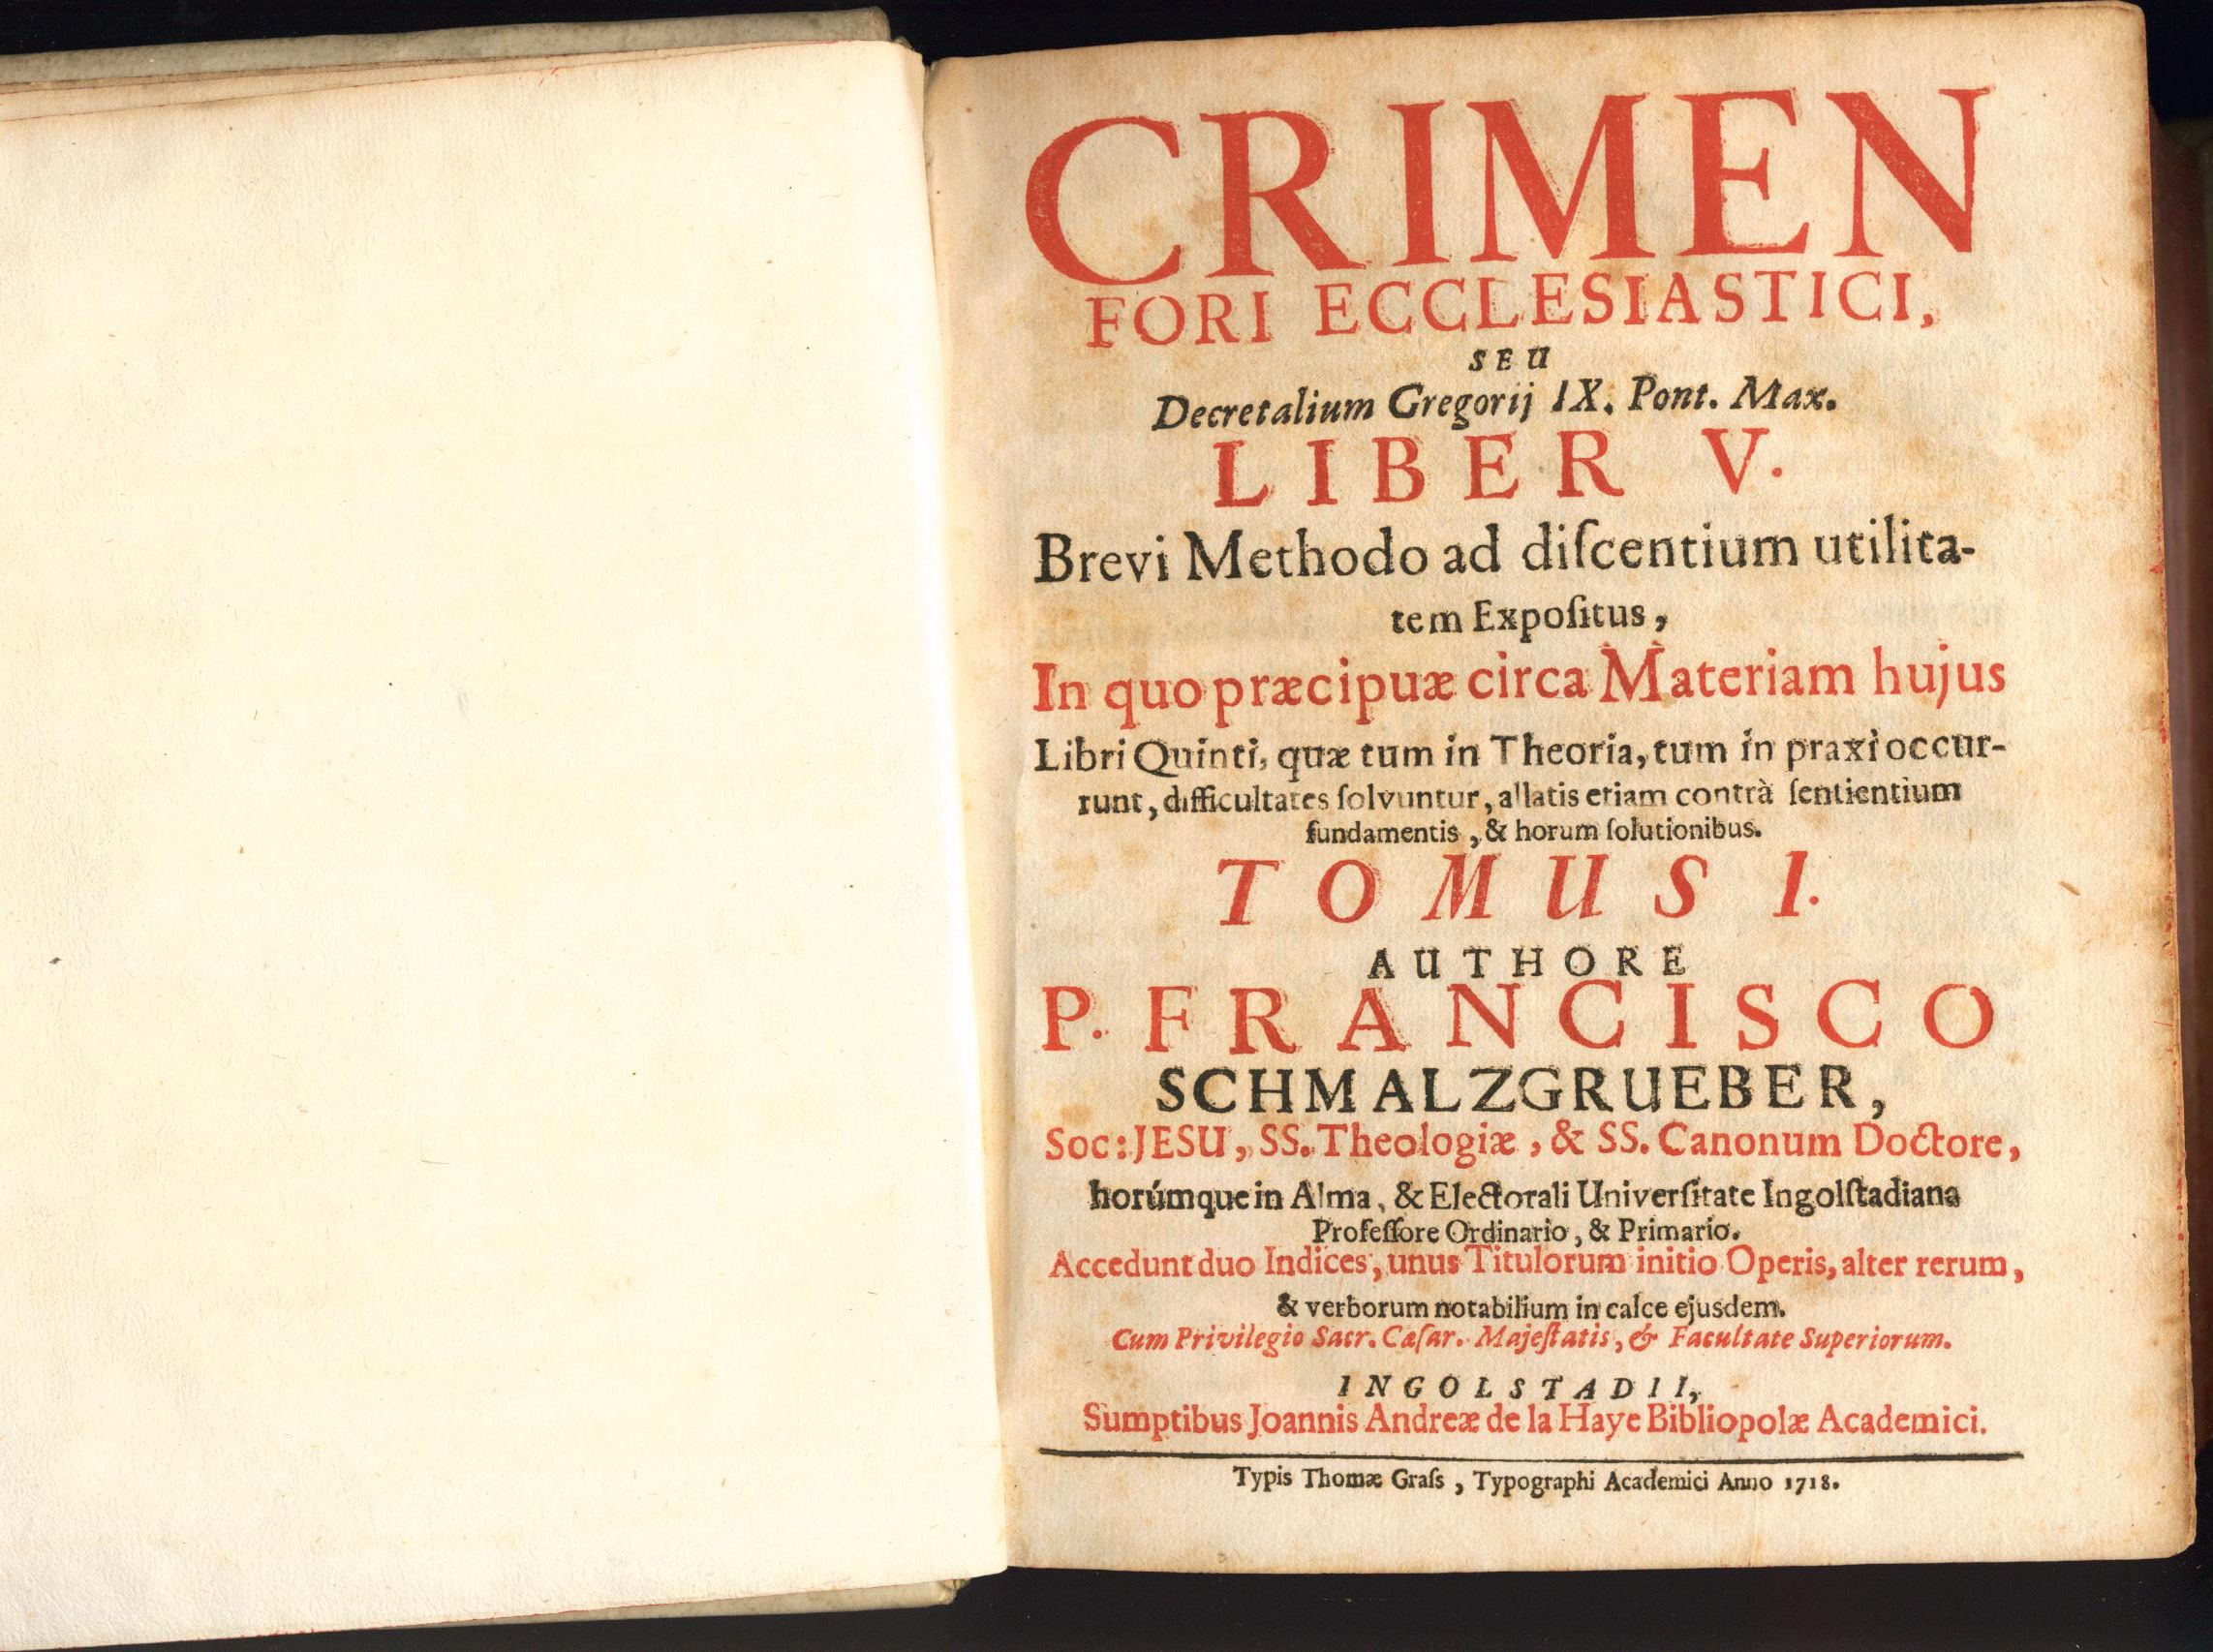 CRIMEN
FORI ECCLESIASTICI,
SEU
Decretalium Gregorij IX. Pont. Max.
LIBER V.
Brevi Methodo ad diſcentium utilita-
tem Expoſitus,
In quo præcipuæ circa Materiam hujus
Libri Quinti, quæ tum in Theoria, tum in praxi occur-
runt, difficultates ſolvuntur, allatis etiam contrà ſentientium
fundamentis, & horum ſolutionibus.
TOMUS I.
AUTHORE
P. FRANCISCO
SCHMALZGRUEBER,
Soc: JESU, SS. Theologiæ, & SS. Canonum Doctore,
horúmque in Alma, & Electorali Univerſitate Ingolſtadiana
Profeſſore Ordinario, & Primario.
Accedunt duo Indices, unus Titulorum initio Operis, alter rerum,
& verborum notabilium in calce ejusdem.
Cum Privilegio Sacr. Cæſar. Majeſtatis, & Facultate Superiorum.
INGOLSTADII,
Sumptibus Joannis Andreæ de la Haye Bibliopolæ Academici.
Typis Thomæ Graſs, Typographi Academici Anno 1718.